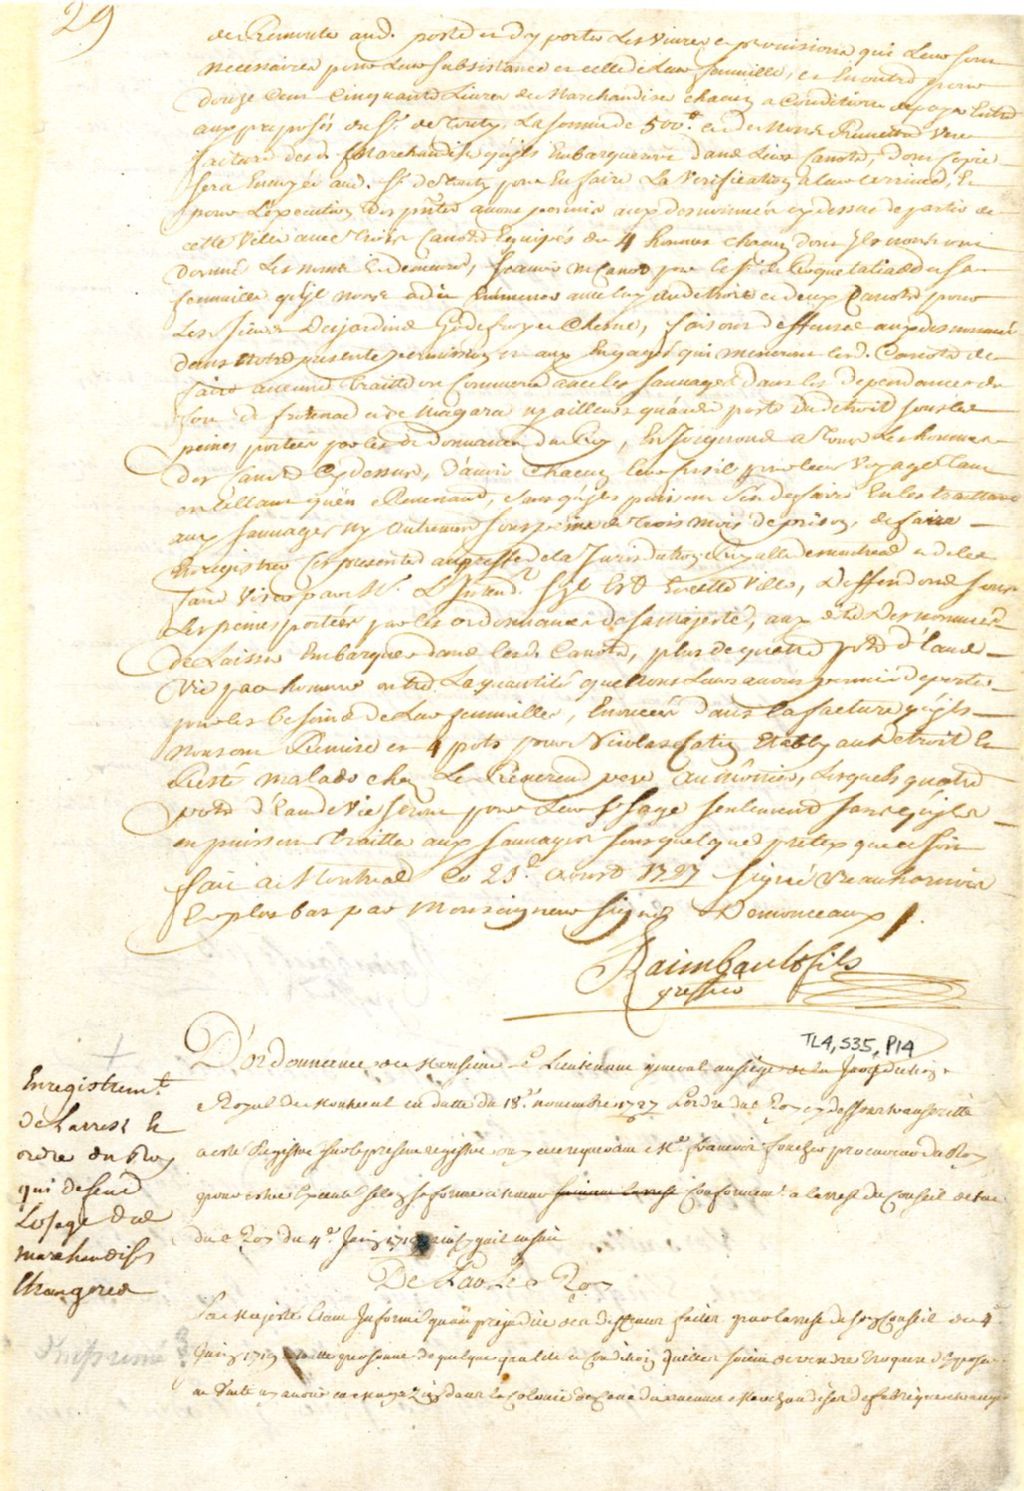 29
de Remonter aud. poste et d'y porter Les Vivres et provisions qui Leur sont
necessaires pour Leur subsistance et celle de Leur famille, et En outre pour
douze Cent Cinquante Livres de Marchandise chacun a Condition de payer Entre
aux preposés du Sr. de Tonty La somme de 500# et de Nous Remettre Une
facture des d. Marchandises qu'ils Embarqueront dans Leurs Canots, dont copie
sera Envoyée aud. Sr. de Tonty pour En faire La Verification a leur arrivée, Et
pour L'execution des pntes avons permis aux desnommés cy dessus de partir de
cette Ville avec trois Canots Equipés de 4 hommes chacun dont Ils nous ont
donné Les noms et demeures, scavoir un Canot pour le Sr. de et sa
famille qu'il nous a dit Emmener avec luy au detroit et deux Canots pour
Les Sieurs Desjardins Godefroy et Chesne, faisons deffenses aux desnommés
dans notre presente permission et aux Engagés qui meneront lesd. Canots de
faire aucune traitte ou Commerce avec les sauvages dans les dependances du
fort de frontenac et de Niagara ny ailleurs qu'audit poste du detroit sous les
peines portées par les ordonnances du Roy, Enjoignons a tous Les hommes
des Canots Cy dessus, d'avoir chacun leur fusil pour leur Voyage tant
en allant qu'en Revenant, sans qu'ils puissent s'en deffaire En les traittant
aux sauvages ny autrement sous peine de trois mois de prison, de faire
Enregistrer Les presentes au greffe de la Jurisdiction royalle de montreal et de les
faire Viser par M. L'Intend. s'il Est En cette Ville, Deffendons sous
Les peines portées par les ordonnances de sa majesté, aux dits Desnommés
de Laisser Embarquer dans lesd. Canots, plus de quatre pots d'Eau de
Vie par homme outre La quantité que Nous Leurs avons permis de porter
pour les besoins de Leur familles, Enoncée dans la facture qu'ils
nous ont Remise et 4 pots pour Nicolas Etably au Detroit Et
Resté malade chez Le Reverend pere Aumônier, Lesquels quatre
pots d'Eau de Vie seront pour Leur Usage seulement sans qu'ils
en puissent traitter aux sauvages sous quelques pretexte que ce soit
fait a Montreal Le 23e aoust 1727 signé Beauharnois
Et plus bas par Monseigneur signé Demonceaux
Raimbault fils
greffier
TL4, S35, P14
Enregistremt
de L'arrest Et
ordre du Roy
qui defend
L'usage des
marchandises
Etrangeres
D'ordonnance de Monsieur Le Lieutenant general au siege de la Jurisdiction
Royal de Montreal en datte du 18e novembre 1727 L'ordre du Roy cy dessous transcritte
a esté Registré sur le present registre ce requerant Me francois foucher procureur du Roy
pour estre Executé selon sa forme et teneur Conformement a l'arrest du Conseil d'etat
du Roy du 4e Juin 1719 ainsy qu'il ensuit
De Par Le Roy
Sa Majesté Etant Informé qu'au prejudice des deffenses faites par l'arrest de son Conseil du 4e
Juin 1719 a toutte personne de quelque qualité et Condition qu'elles soient de vendre troquer d'Exposer
en Vente ny avoir en magazin dans la Colonie de Canada aucunes Marchandises de fabrique etrangere